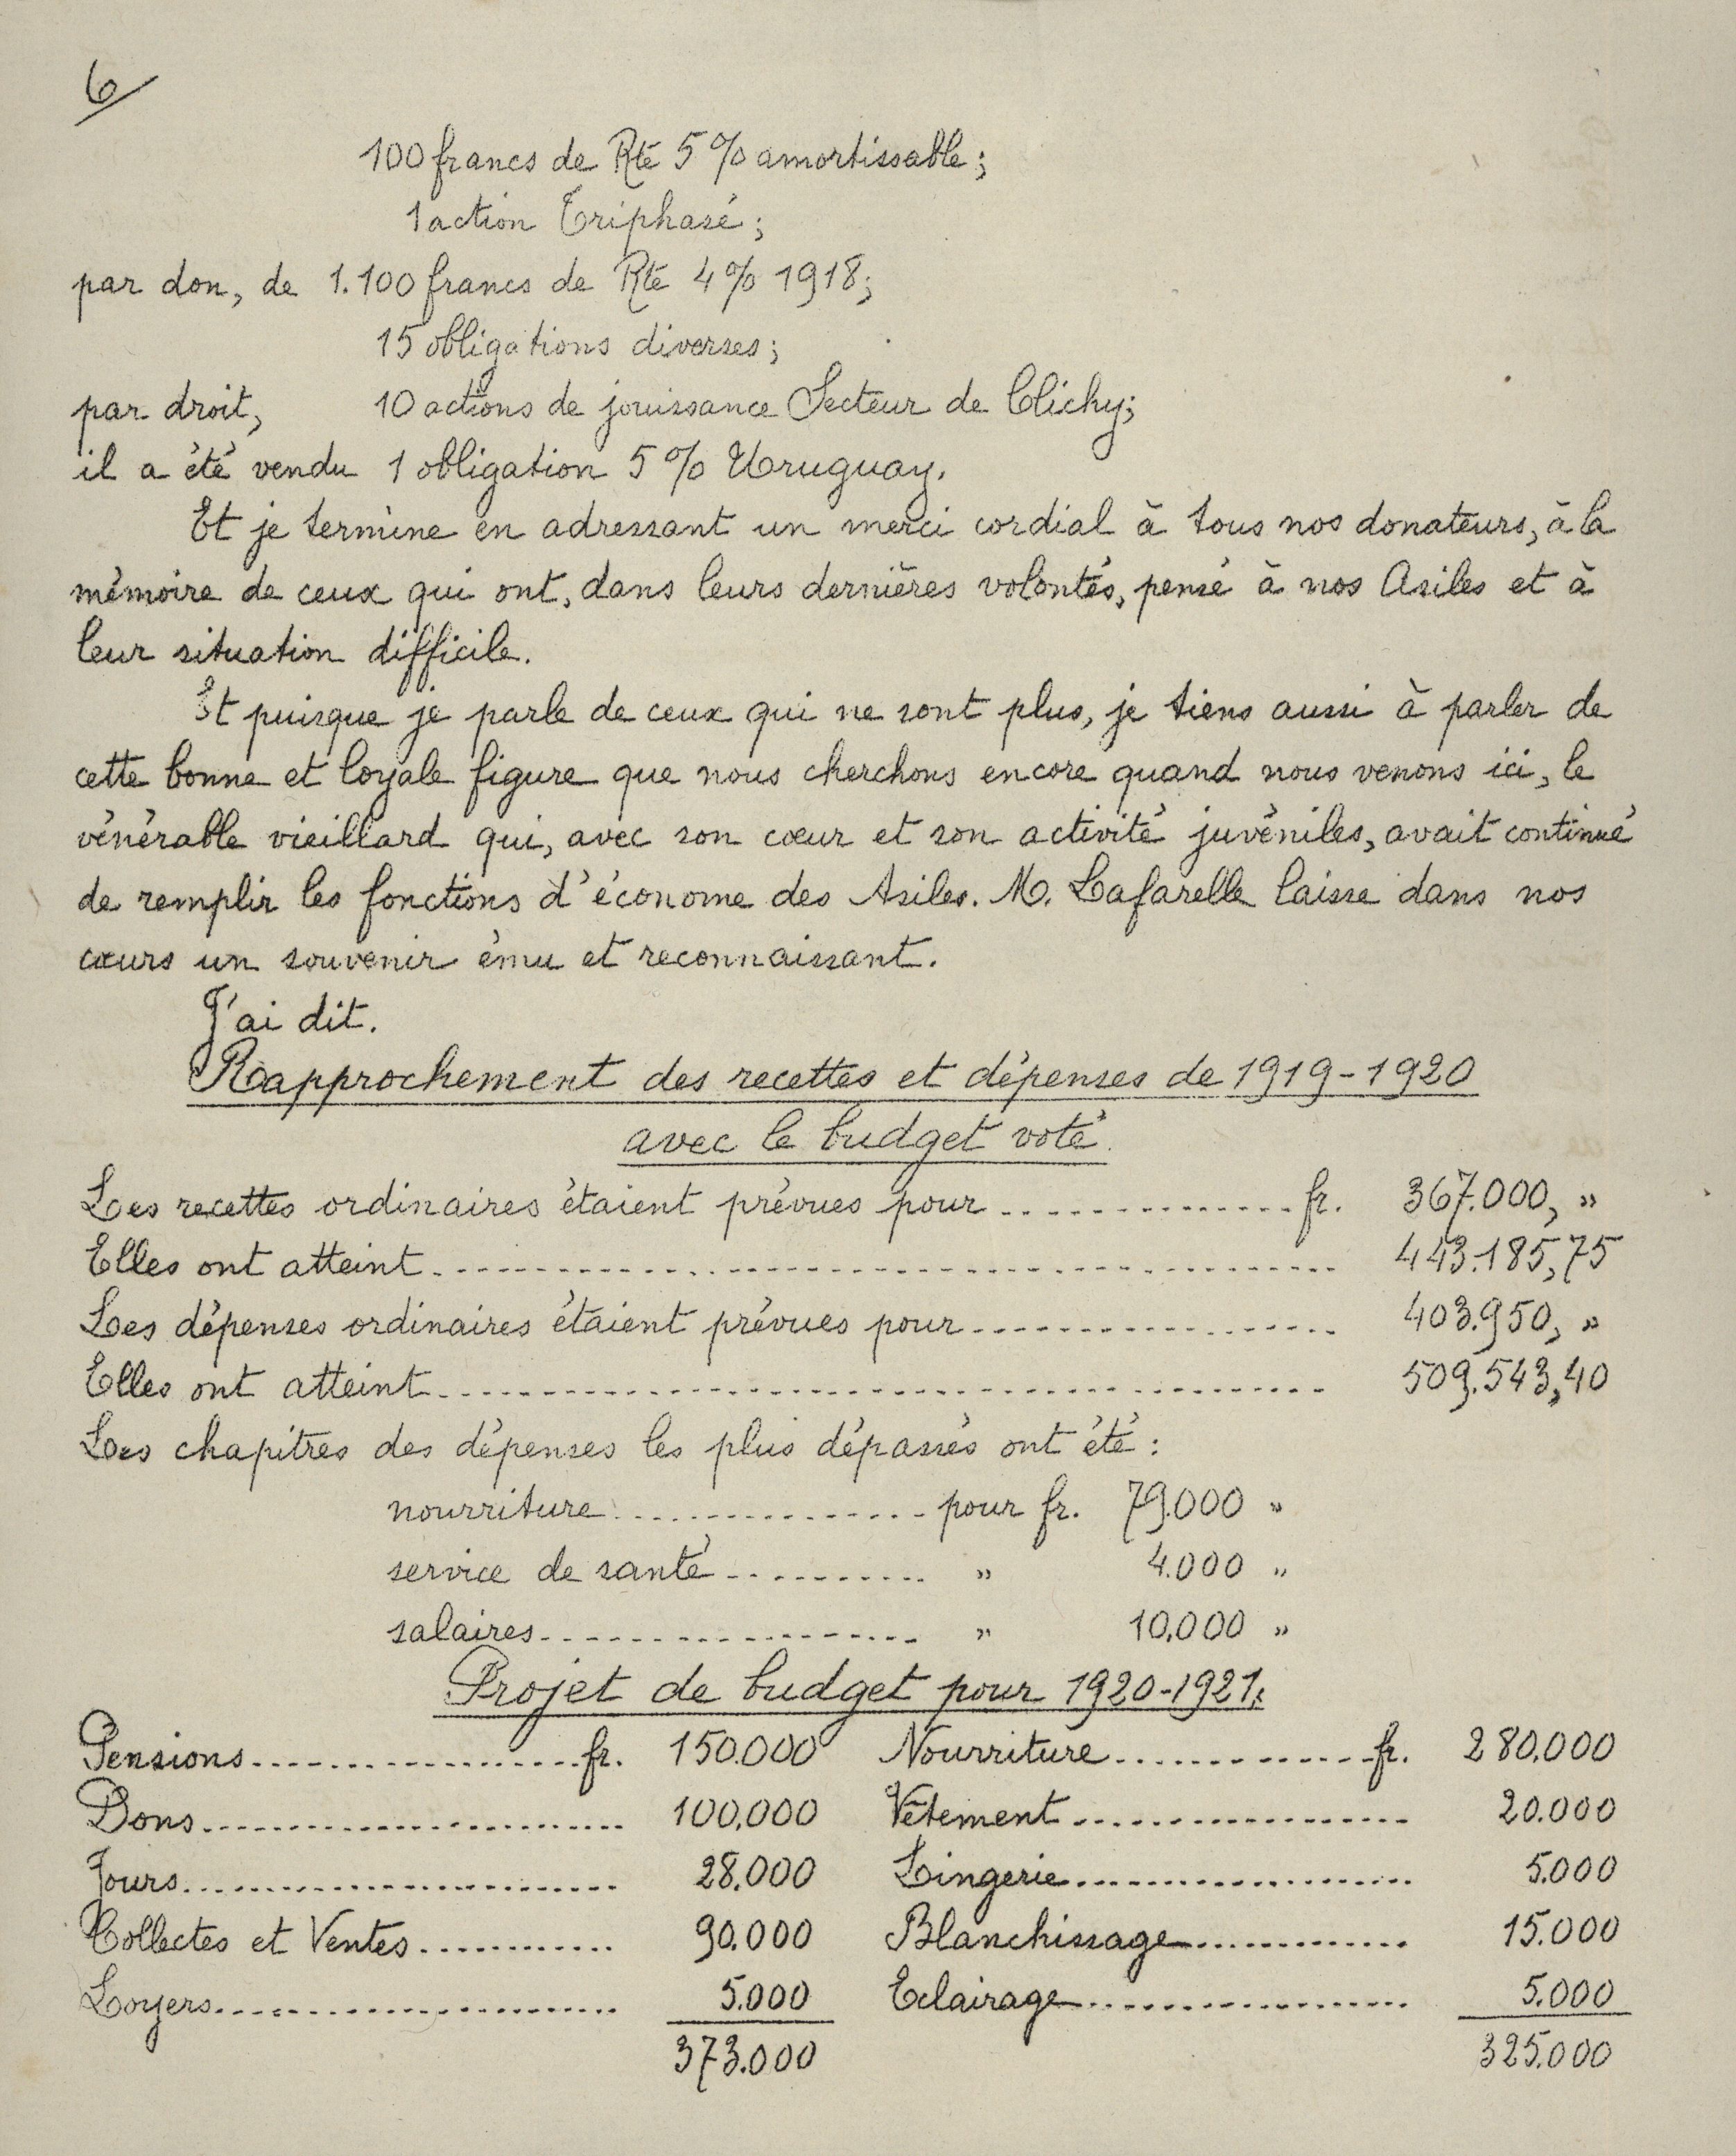 6
100 francs de Rte 5% amortissable;
1 action Triphasé;
par don, de 1.100 francs de Rte 4% 1918;
15 obligations diverses;
par droit, 10 actions de jouissance Secteur de Clichy;
il a été vendu 1 obligation 5% Uruguay.
Et je termine en adressant un merci cordial à tous nos donateurs, à la
mémoire de ceux qui ont, dans leurs dernières volontés, pensé à nos Asiles et à
leur situation difficile.
Et puisque je parle de ceux qui ne sont plus, je tiens aussi à parler de
cette bonne et loyale figure que nous cherchons encore quand nous venons ici, le
vénérable vieillard qui, avec son cœur et son activité juvéniles, avait continué
de remplir les fonctions d'économe des Asiles. M. Lafarelle laisse dans nos
cœurs un souvenir ému et reconnaissant.
J'ai dit.
Rapprochement des recettes et dépenses de 1919-1920
avec le budget voté.
Les recettes ordinaires étaient prévues pour ............... fr. 367.000, "
Elles ont atteint ............... 443.185,75
Les dépenses ordinaires étaient prévues pour ............... 403.950, "
Elles ont atteint ............... 509.543,40
Les chapitres des dépenses les plus dépassés ont été :
nourriture ............... pour fr. 79.000 "
service de santé ............... " 4.000 "
salaires ............... " 10.000 "
Projet de budget pour 1920-1921.
Pensions ............... fr. 150.000 Nourriture ............... fr. 280.000
Dons ............... 100.000 Vêtement ............... 20.000
Jours ............... 28.000 Lingerie ............... 5.000
Collectes et Ventes ............... 90.000 Blanchissage ............... 15.000
Loyers ............... 5.000 Eclairage ............... 5.000
373.000 325.000